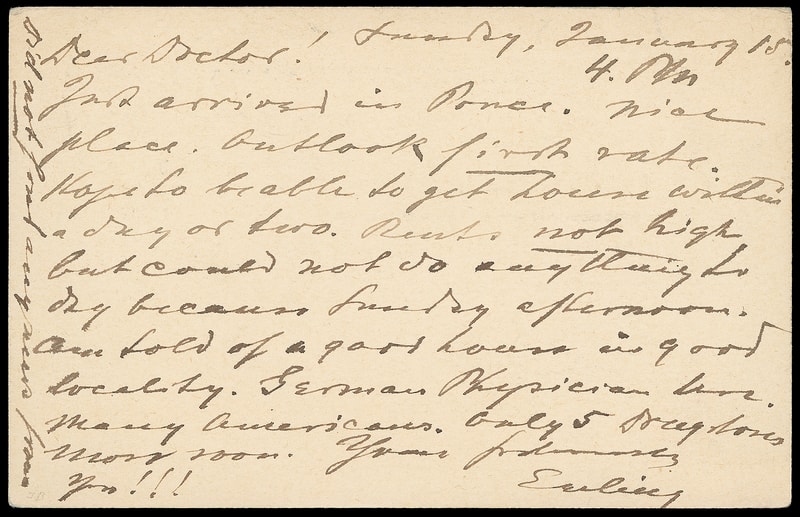 Dear Doctor! Sunday, January 15.
4. PM
Just arrived in Ponce. Nice
place. Outlook first rate.
Hope to be able to get house within
a day or two. Rents not high
but could not do anything to
day because Sunday afternoon.
Am told of a good house in good
locality. German Physician here.
Many Americans. Only 5 Drugstores
More soon. Yours
Did not find any news from
you!!!